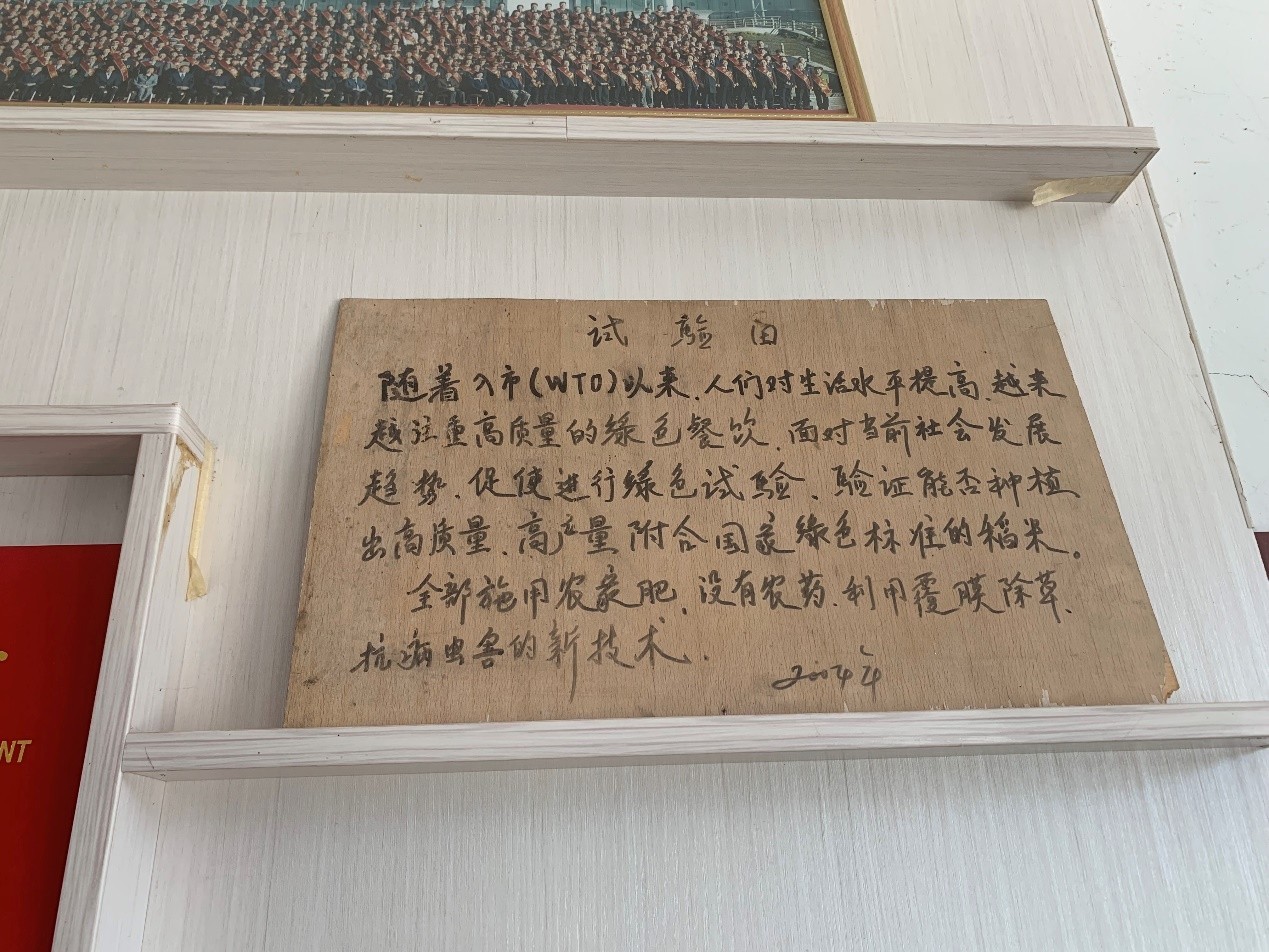 试验田
随着入市(WTO)以来、人们对生活水平提高、越来
越注重高质量的绿色餐饮、面对当前社会发展
趋势、促使进行绿色试验、验证能否种植
出高质量、高产量附合国家绿色标准的稻米。
全部施用农家肥、没有农药、利用覆膜除草、
抗病虫害的新技术.
2004年
NT